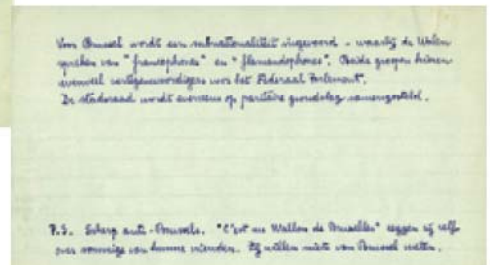 Voor Brussel wordt een subnationaliteit ingevoerd - waarbij de Walen
spreken van "francophones" en "flamandophones". Beide groepen kiezen
evenveel vertegenwoordigers voor het Federaal Parlement.
De stadsraad wordt eveneens op paritaire grondslag samengesteld.
P.S. Scherp anti-Brussels. "C'est un Wallon de Bruxelles" zeggen zij zelf
over sommige van hunne vrienden. Zij willen niets van Brussel weten.